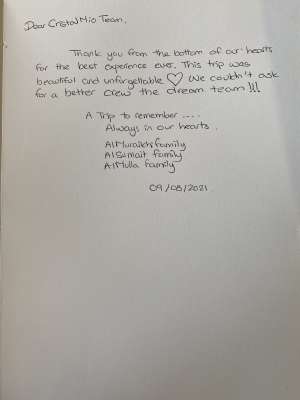 Dear Cristal Mio Team,
Thank you from the bottom of our hearts
for the best experience ever. This trip was
beautiful and unforgettable ♡ We couldn't ask
for a better crew the dream team!!!
A Trip to remember ....
Always in our hearts.
AlMuraikhi family
AlSumait family
AlMulla family
09/08/2021